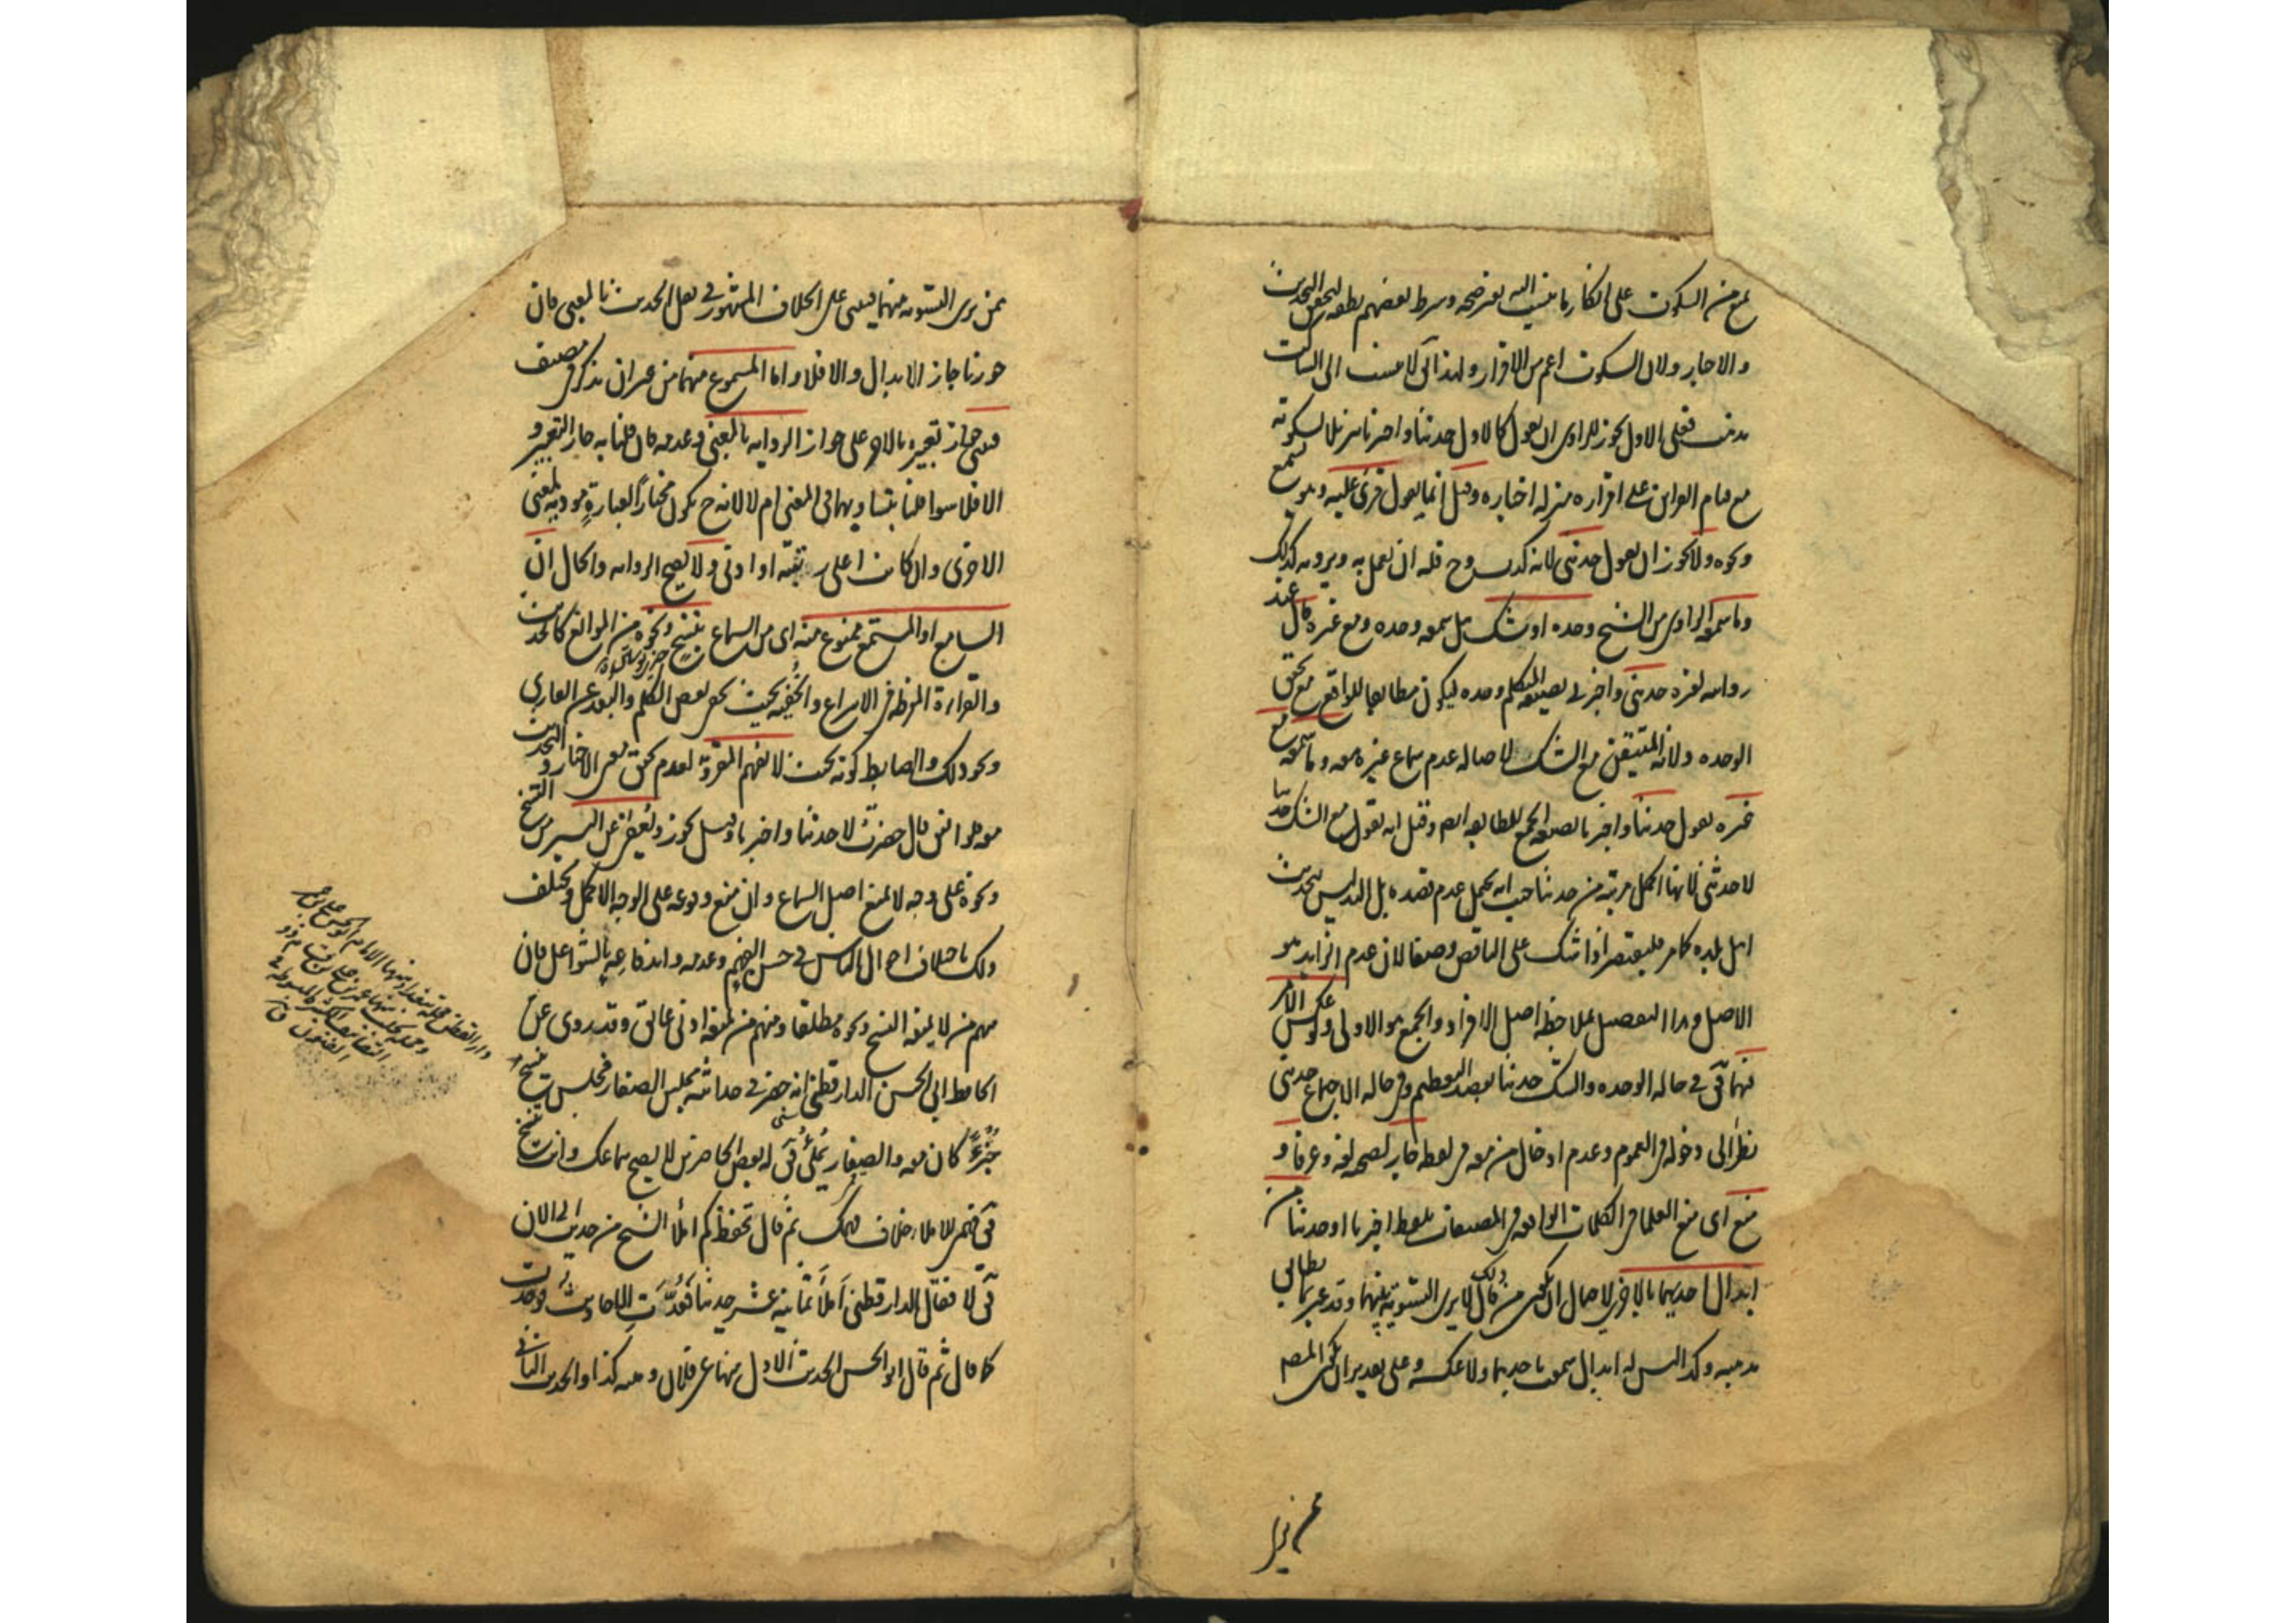 يمنع من السكوت على إنكار ما ينسب اليه بغير صحه وشرط بعضهم نطقه لتحقق التحديث
والاخبار ولان السكوت اعم من الاقرار ولهذا يق لا ينسب الى الساكت
مذهب فعلى الاول يجوز للراوى ان يقول كالاول حدثنا واخبرنا تنزيلا لسكوته
مع قيام القراين على اقراره منزله اخباره وقيل انما يقول قرئ عليه وهو يسمع
ونحوه ولا يجوز ان يقول حدثنى لانه كذب وح فله ان يعمل به ويرويه كذلك
وما سمعه الراوى من الشيخ وحده او شك هل سمعه وحده او مع غيره قال عند
روايته لغيره حدثنى واخبرنى بصيغه المتكلم وحده ليكون مطابقا للواقع مع تحقق
الوحده ولانه المتيقن مع الشك لاصاله عدم سماع غيره معه وما سمعه مع
غيره يقول حدثنا واخبرنا بصيغه الجمع للمطابقه ايضا وقيل انه يقول مع الشك حدثنا
لا حدثنى لانها اكمل مرتبه من حدثنا حيث انه يحتمل عدم قصده بل التدليس بتحديث
اهل بلده كما مر فليقتصر اذا شك على الناقص وصفا لان عدم الزايد هو
الاصل وهذا التفصيل بملاحظه اصل الافراد والجمع هو الاولى ولو عكس الامر
فيهما فق فى حاله الوحده والشك حدثنا بقصد التعظيم وفى حاله الاجتماع حدثنى
نظرا الى دخوله فى العموم وعدم ادخال من معه فى لفظه جاز لصحه لغه وعرفا و
منع اى منع العلما فى الكلمات الواقعه فى المصنفات بلفظ اخبرنا او حدثنا من
ابدال احديهما بالاخرى لاحتمال ان يكون من قال ذلك لا يرى التسويه بينهما وقد عبر بما يطابق
مذهبه وكذا ليس له ابدال سمعت باحديهما ولا عكسه وعلى تقدير ان يكون المصنف
ممن يرى
ممن يرى التسويه بينهما فيبنى على الخلاف المشهور فى نقل الحديث بالمعنى فان
جوزنا جاز الابدال والا فلا واما المسموع منهما من غير ان يذكر فى مصنف
فيبنى جواز تعبيره بالاخر على جواز الروايه بالمعنى وعدمه فان قلنا به جاز التعبير و
الا فلا سوا قلنا بتساويهما فى المعنى ام لا لانه ح يكون مختارا لعبارة مؤديه لمعنى
الاخرى وان كانت اعلى رتبه او ادنى ولا يصح الروايه والحال ان
السامع او المستمع ممنوع منه اى من السماع بنسخ ونحوه من الموانع كالحديث
والقراءة المفرطه فى الاسراع والخفيه بحيث يخفى بعض الكلم والبعد عن القارى
ونحو ذلك والضابط كونه بحيث لا يفهم المقروّ لعدم تحقق معنى الاخبار و التحديث
معه ولو اتفق قال حضرت لا حدثنا واخبرنا وقيل يجوز ويعفى عن اليسير من النسخ
ونحوه على وجه لا يمنع اصل السماع وان منع وقوعه على الوجه الاكمل ويختلف
ذلك باختلاف احوال الناس فى حسن الفهم وعدمه واندفاعه بالشواغل فان
منهم من لا يمنعه النسخ ونحوه مطلقا ومنهم من يمنعه ادنى عائق وقد روى عن
الحافظ ابى الحسن الدارقطنى انه حضر فى حداثته مجلس الصفار فجلس ينسخ
جزءا كان معه والصفار يملى فق له بعض الحاضرين لا يصح سماعك وانت تنسخ
فق فهمى للاملاء خلاف فهمك ثم قال تحفظ كم املأ الشيخ من حديث الى الان
فق لا فقال الدارقطنى املأ ثمانية عشر حديثا فعُدّت الاحاديث فوجدت
كما قال ثم قال ابو الحسن الحديث الاول منها عن فلان ومتنه كذا والحديث الثانى